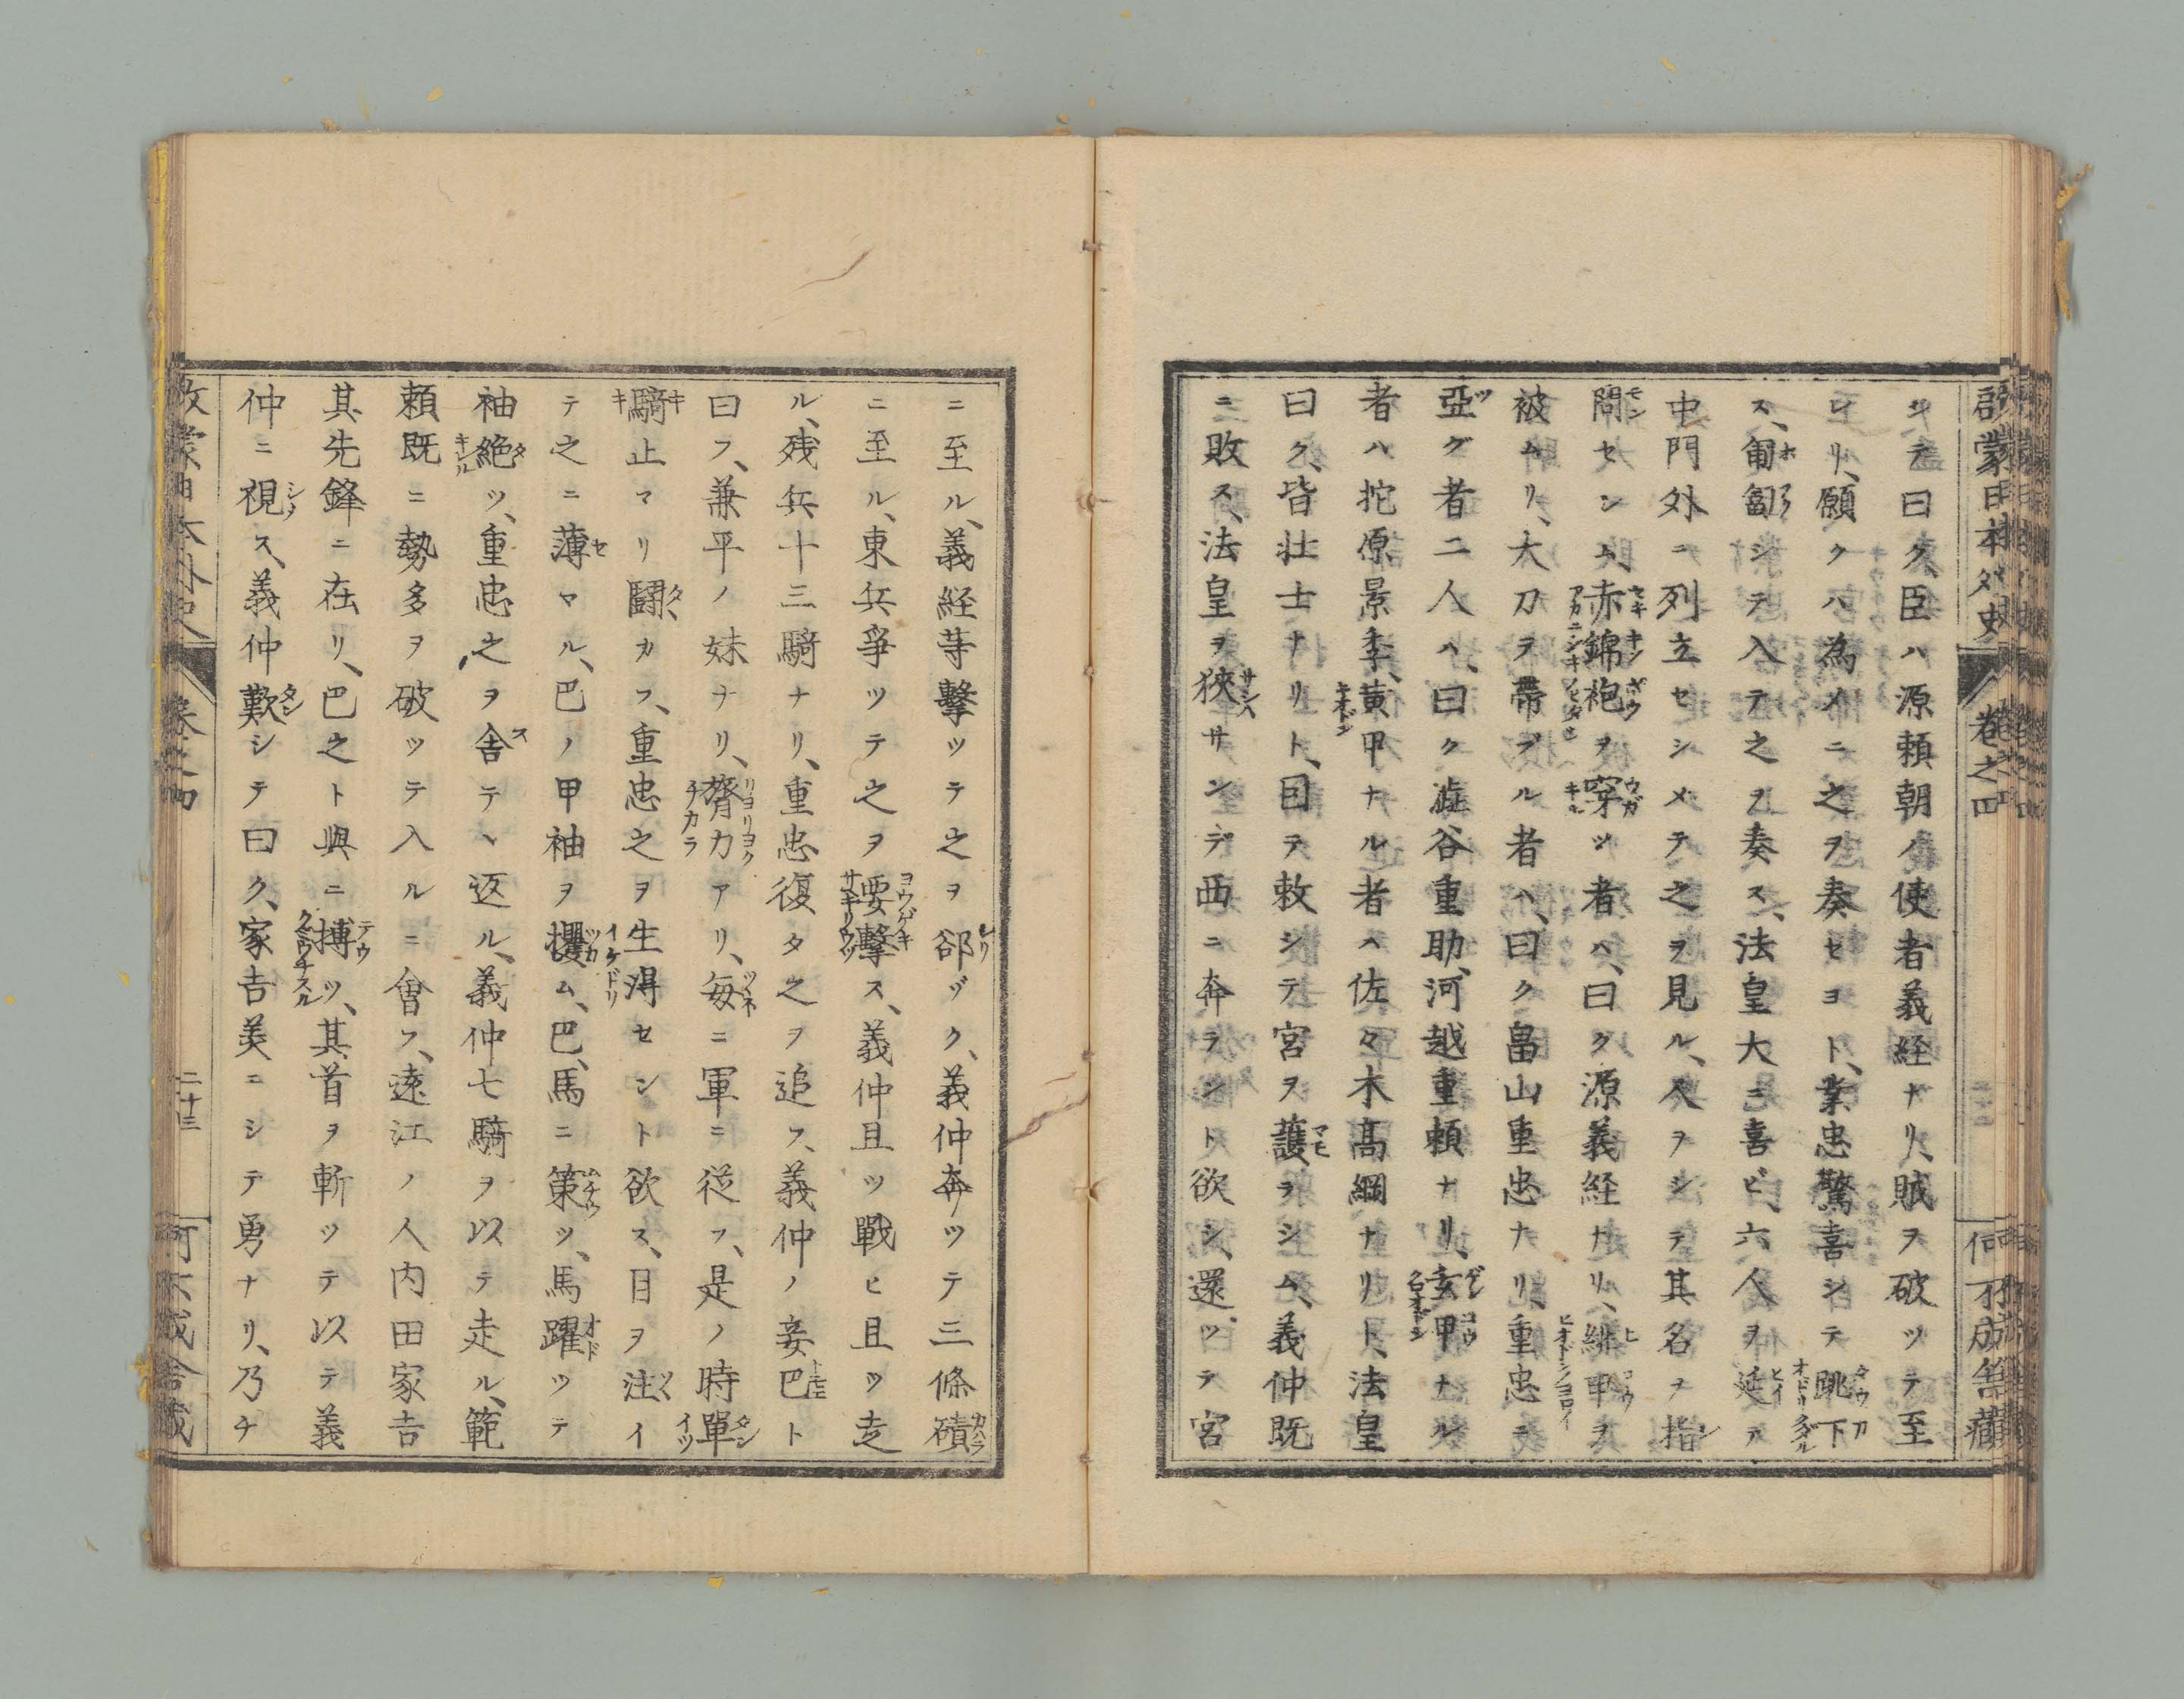 啓蒙日本外史 巻之四 何不成舎藏
ンテ曰ク、臣ハ源頼朝ノ使者義経ナリ、賊ヲ破ツテ至
レリ、願クハ為メニ之ヲ奏セヨト、業忠驚喜シテ跳下
ス、匍匐シテ入テ之ヲ奏ス、法皇大ニ喜ビ、六人ヲ延テ
中門外ニ列立セシメテ之ヲ見ル、人ヲシテ其名ヲ指
問センム、赤錦袍ヲ穿ツ者ハ、曰ク源義経ナリ、緋甲ヲ
被ムリ、大刀ヲ帶ブル者ハ、曰ク畠山重忠ナリ、重忠ニ
亞グ者二人ハ、曰ク澁谷重助、河越重頼ナリ、玄甲ナル
者ハ挓原景季、黄甲ナル者ハ佐々木髙綱ナリト、法皇
曰ク、皆壮士ナリト、因テ敕シテ宮ヲ護ラシム、義仲既
ニ敗ス、法皇ヲ狹サンデ西ニ奔ラント欲シ、還ツテ宮
ニ至ル、義経等擊ツテ之ヲ郤ゾク、義仲奔ツテ三條磧
ニ至ル、東兵爭ツテ之ヲ要擊ス、義仲且ツ戰ヒ且ツ走
ル、残兵十三騎ナリ、重忠復タ之ヲ追フ、義仲ノ妾巴ト
曰フ、兼平ノ妹ナリ、膂力アリ、毎ニ軍ニ従フ、是ノ時單
騎止マリ鬪カフ、重忠之ヲ生淂セント欲ス、目ヲ注イ
テ之ニ薄マル、巴ノ甲袖ヲ攫ム、巴、馬ニ策ツ、馬躍ツテ
袖絶ツ、重忠之ヲ舎テヽ返ル、義仲七騎ヲ以テ走ル、範
頼既ニ勢多ヲ破ツテ入ルニ會フ、遠江ノ人内田家吉
其先鋒ニ在リ、巴之ト與ニ搏ツ、其首ヲ斬ツテ以テ義
仲ニ視ス、義仲歎シテ曰ク、家吉美ニシテ勇ナリ、乃チ
啓蒙日本外史 巻之四 二十三 何不成舎藏